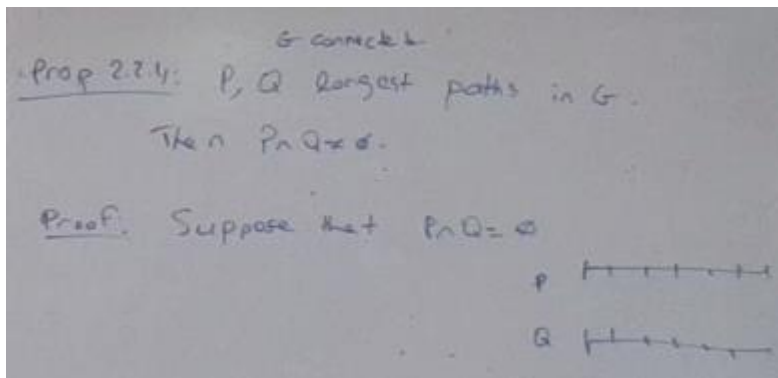 G connected
Prop 2.2.4: P, Q longest paths in G.
Then P∩Q≠∅.
Proof. Suppose that P∩Q=∅
P
Q